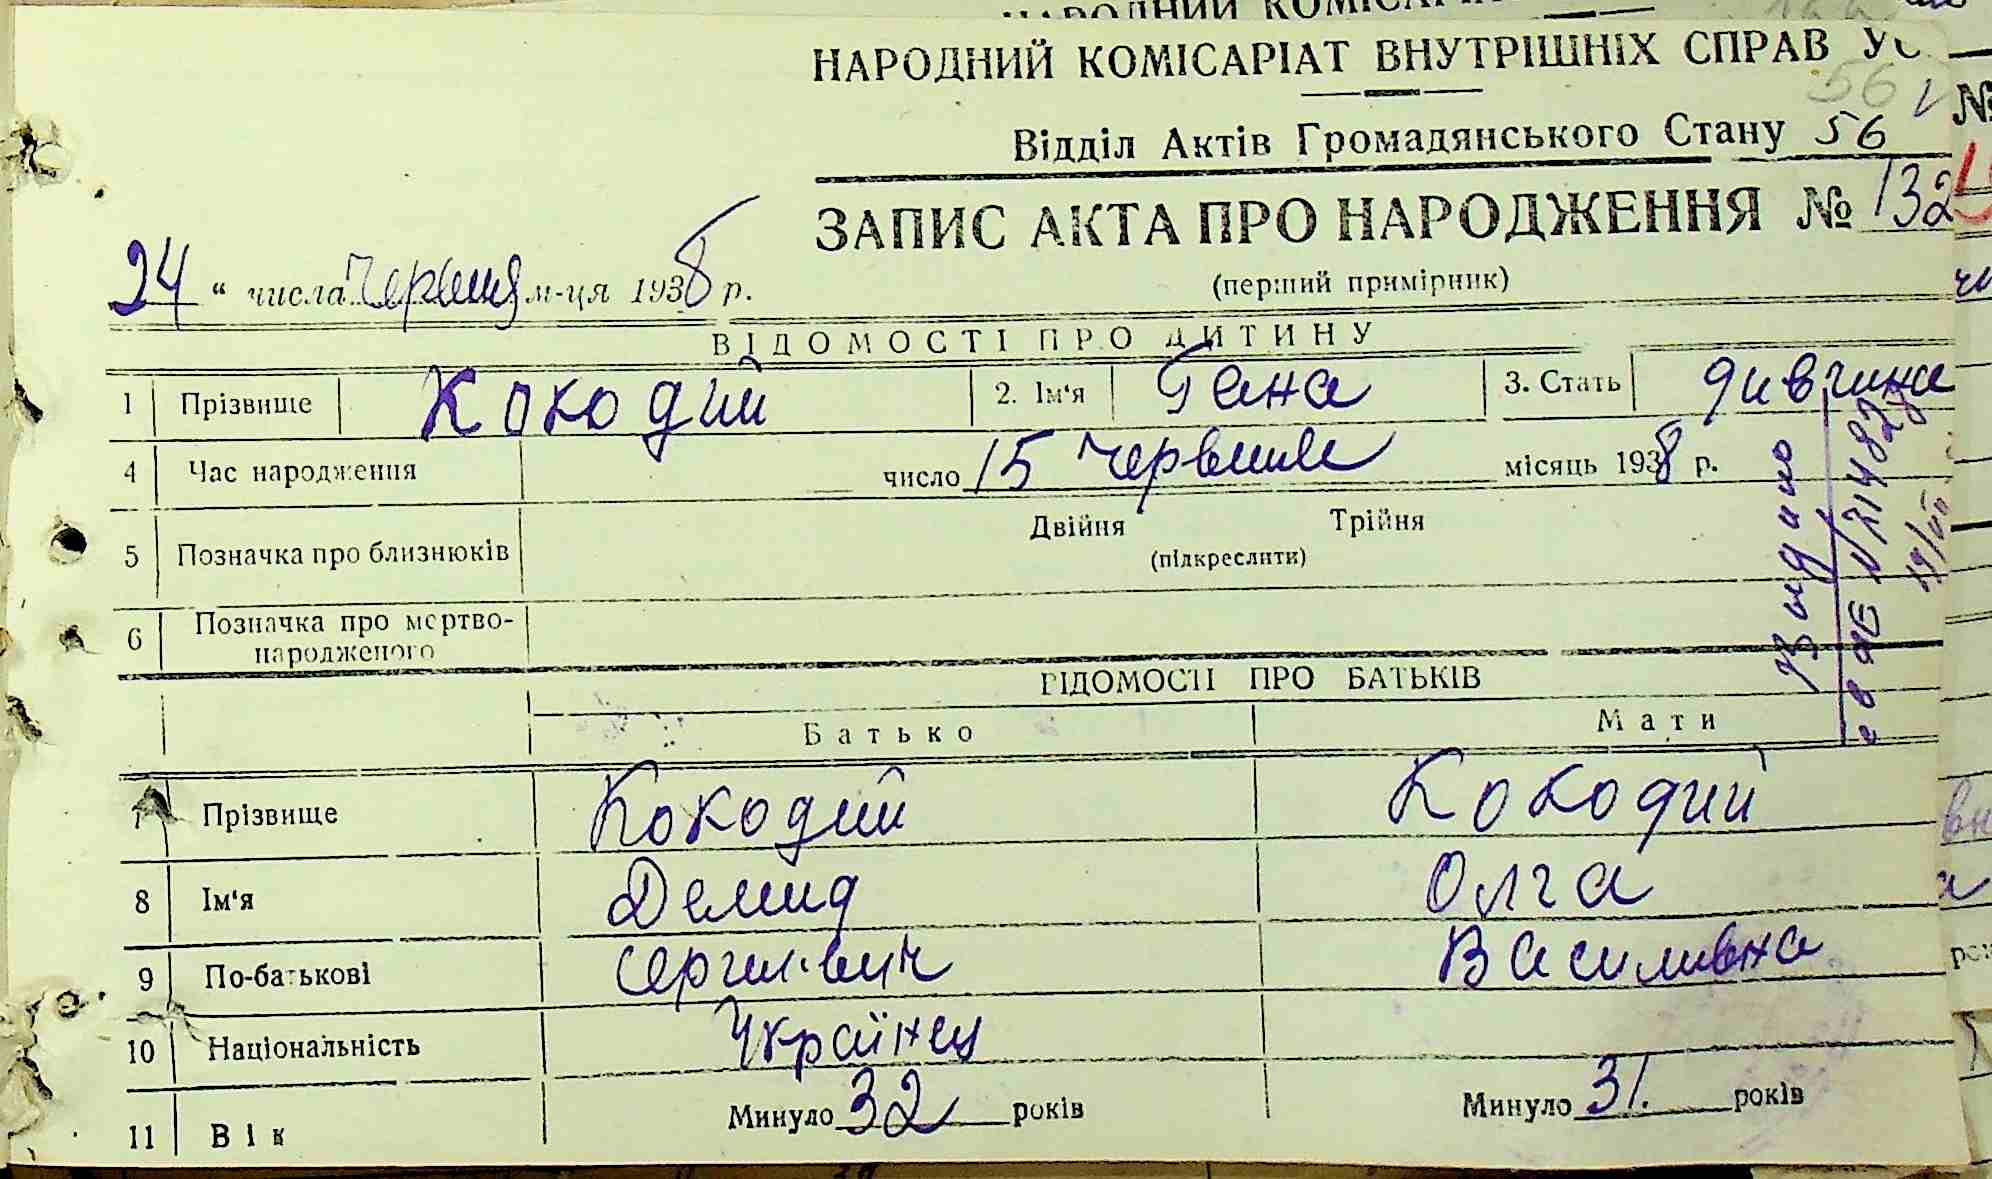 НАРОДНИЙ КОМІСАРІАТ ВНУТРІШНІХ СПРАВ УС
56
Відділ Актів Громадянського Стану 56
ЗАПИС АКТА ПРО НАРОДЖЕННЯ № 132
(перший примірник)
24 “ числа Червня м-ця 1938 р.
ВІДОМОСТІ ПРО ДИТИНУ
1 Прізвище Кокодий 2. Ім'я Гана 3. Стать дивчина
4 Час народження число 15 червння місяць 1938 р.
5 Позначка про близнюків Двійня Трійня
(підкреслити)
6 Позначка про мертво-
народженого
Видано
N 211482
19/VII
ВІДОМОСТІ ПРО БАТЬКІВ
Батько Мати
7 Прізвище Кокодий Кокодий
8 Ім'я Демид Олга
9 По-батькові Сергиєвич Василивна
10 Національність Українец
11 Вік Минуло 32 років Минуло 31. років